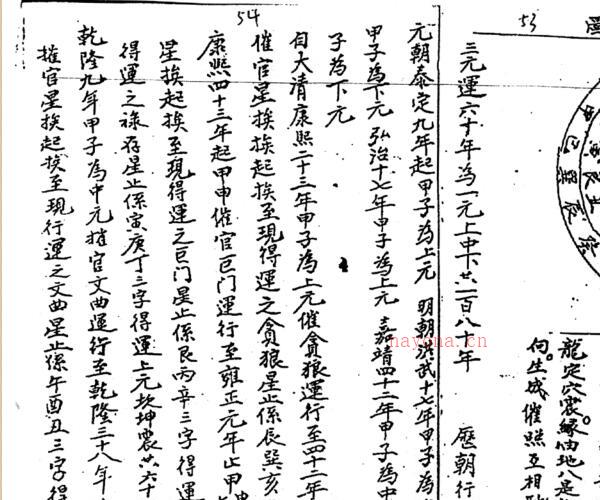 53
三元運六十年為一元上中下共一百八十年 歷朝行
元朝泰定九年起甲子為上元 明朝洪武十七年甲子為
甲子為下元 弘治十七年甲子為上元 嘉靖四十二年甲子為
子為下元
自大清康熙二十三年甲子為上元催貪狼運行至四十二年
催官星挨挨起挨至現得運之貪狼星止係辰巽亥
康熙四十三年起甲申催官巨门運行至雍正元年止甲
星挨起挨至現得運之巨门星止係艮丙辛三字得運
得運之祿存星止係寅庚丁三字得運上元坎坤震共六十
乾隆九年甲子為中元催官文曲運行至乾隆二十八年
催官星挨起挨至現行運之文曲星止係午酉丑三字得
54
龍定穴震緣
地八是
向生成催照互相
nayona.cn